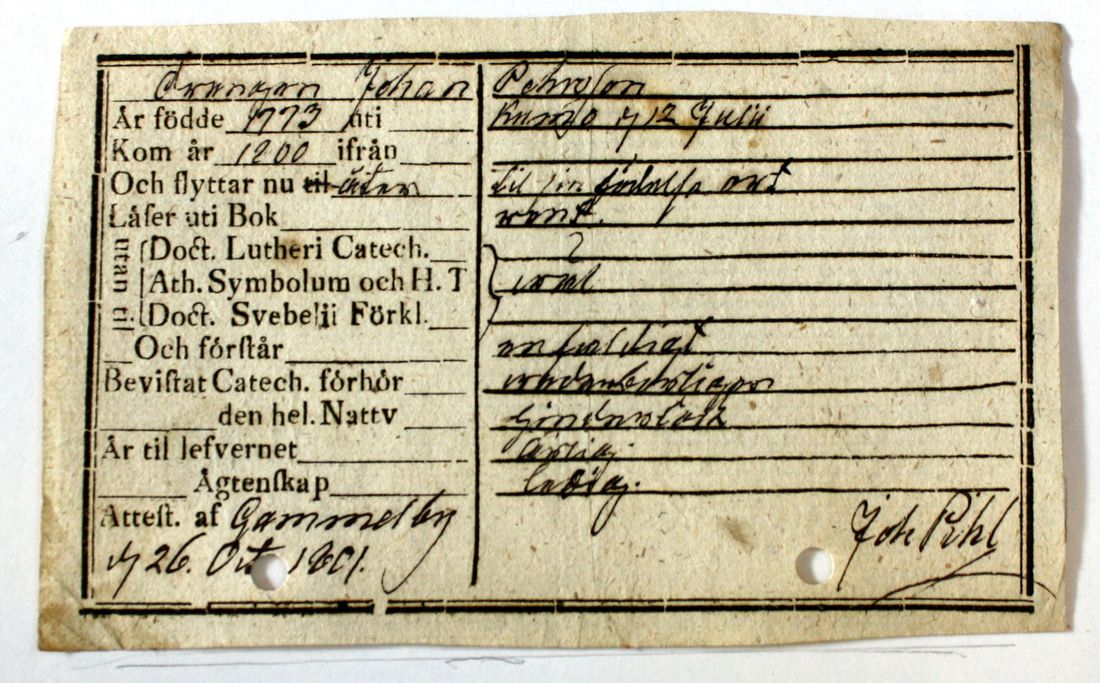 Drengen Johan Pehrsson
År födde 1773 uti Kumbo d 12 Julii
Kom år 1800 ifrån
Och flyttar nu til åter til sin födelse ort
Låser uti Bok rent.
utan til
Doct. Lutheri Catech.
Ath. Symbolum och H. T
Doct. Svebelii Förkl.
Och förstår enfaldigt
Bevistat Catech. förhör
den hel. Nattv
År til lefvernet ärlig.
Ägtenskap ledig.
Attest. af Gammelby
d 26. Oct. 1801. Joh Pihl